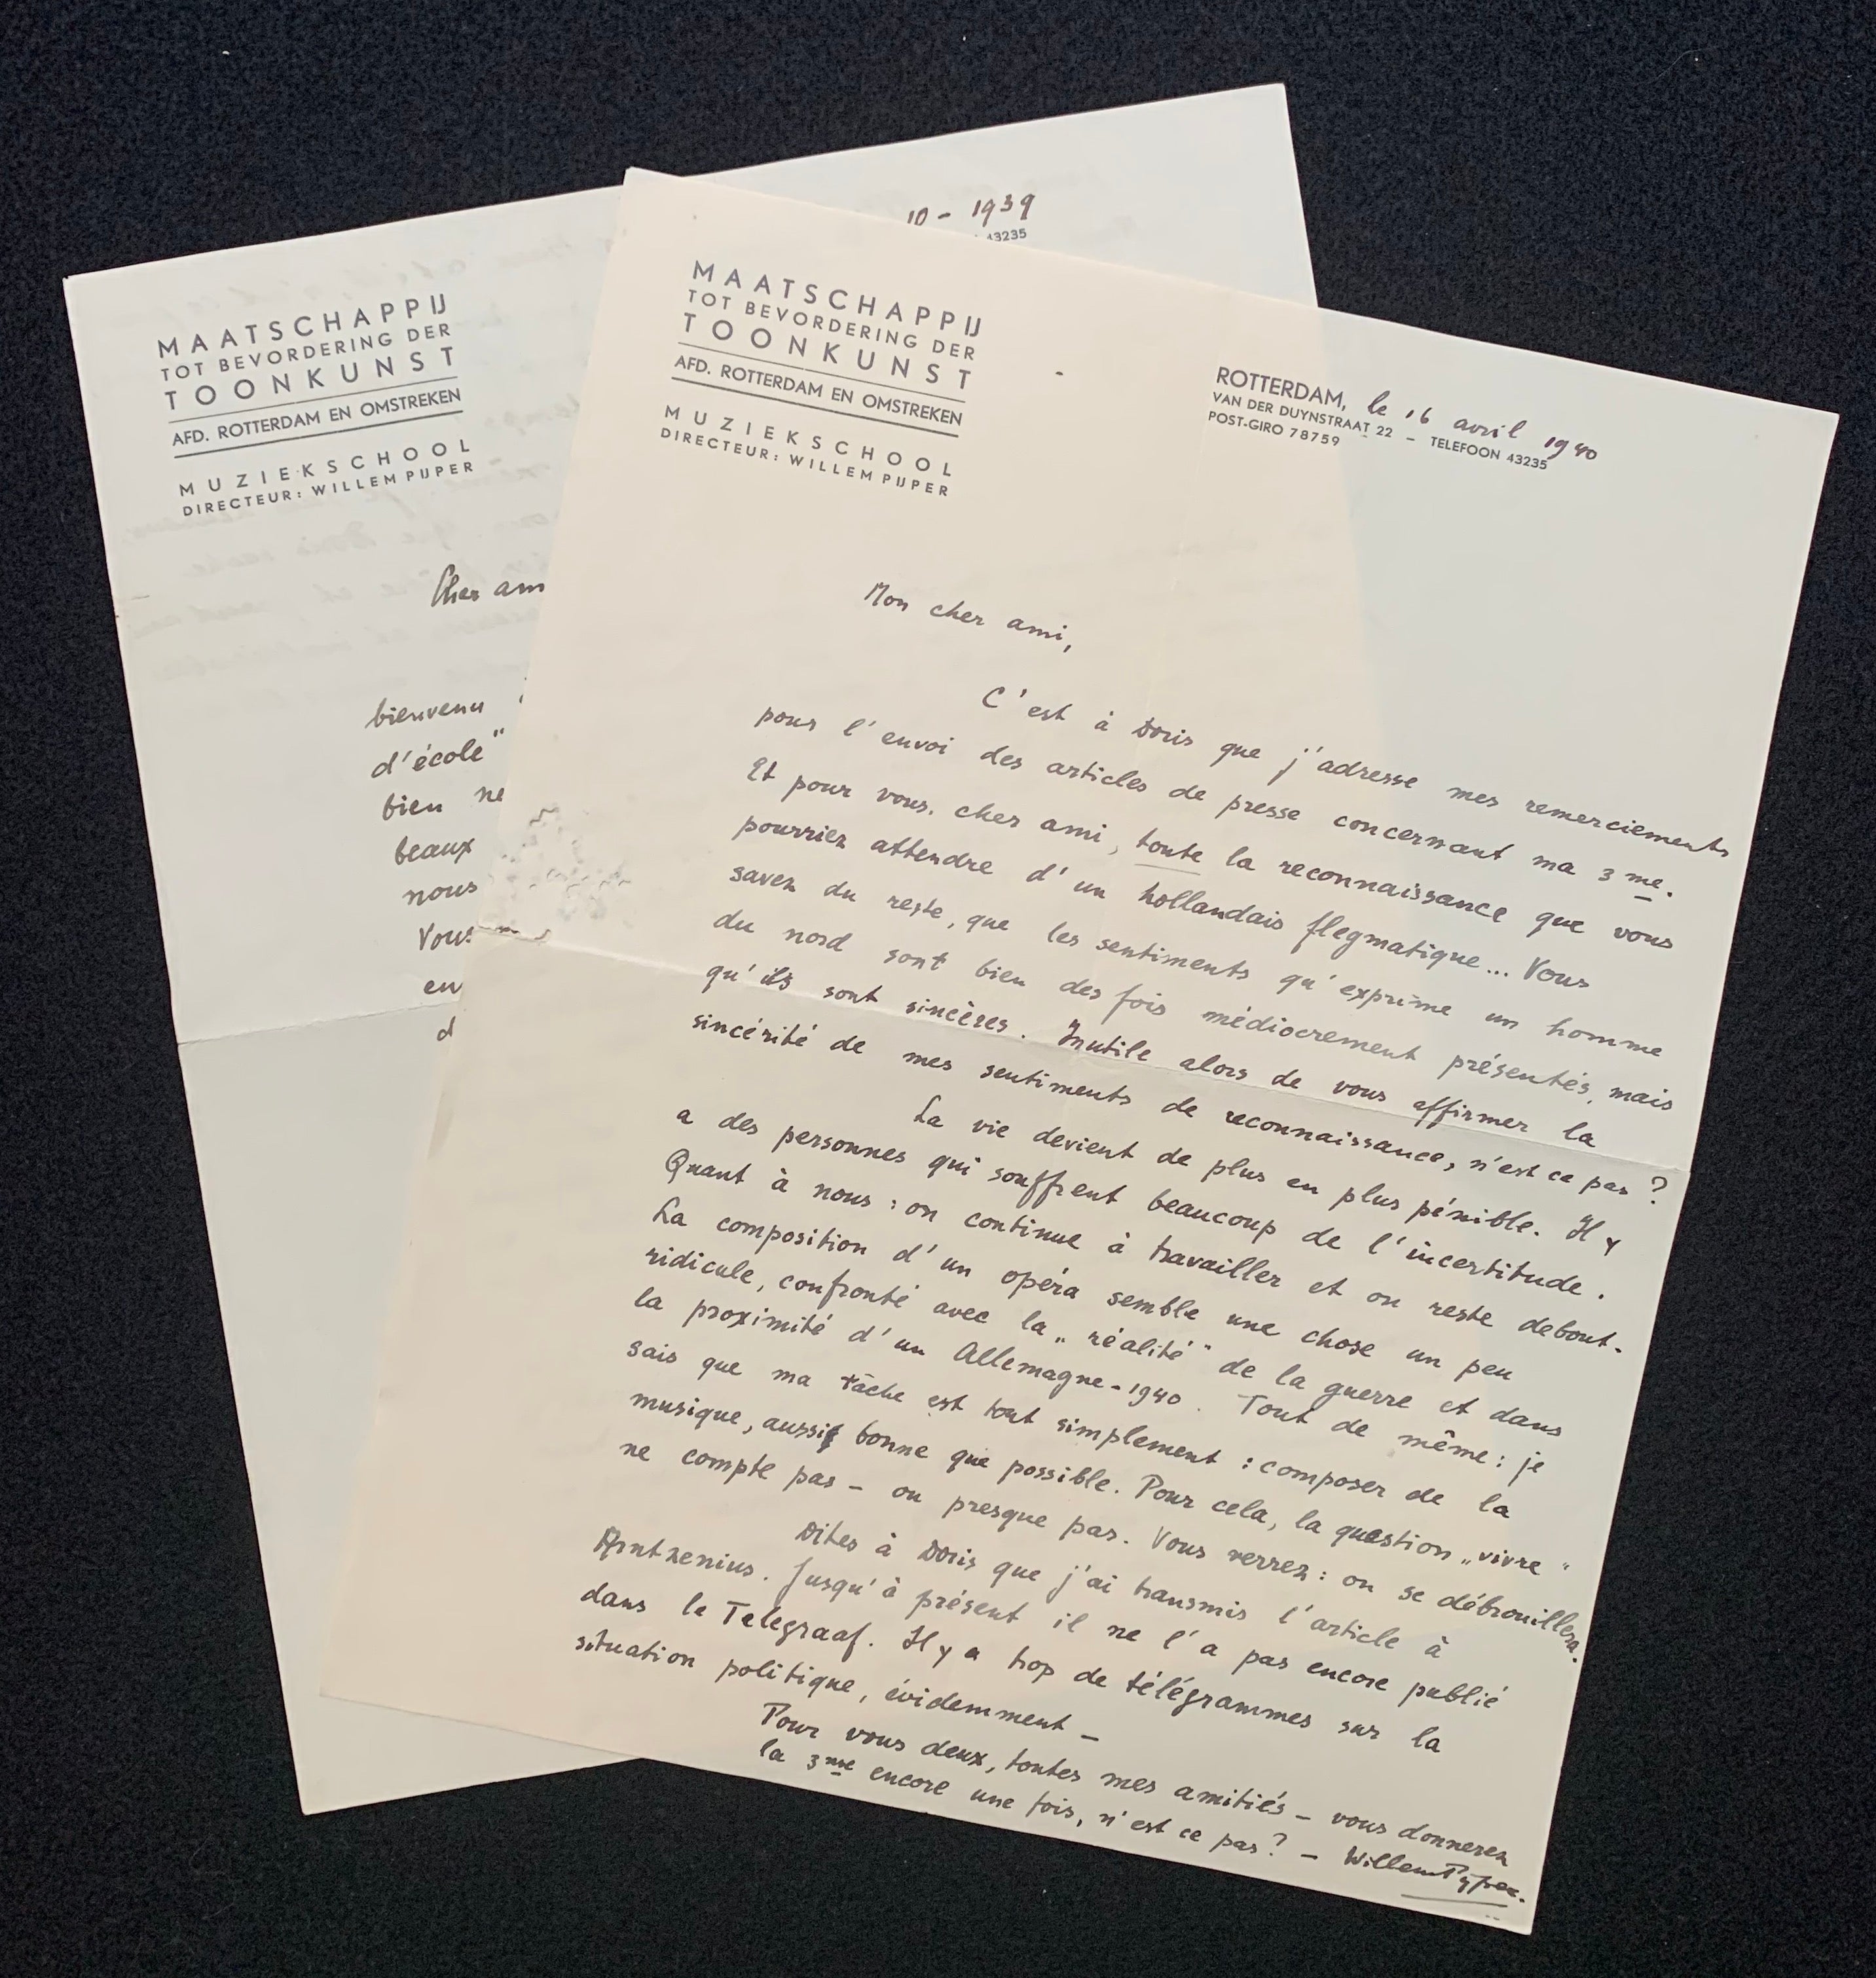 10 - 1939
43235
MAATSCHAPPIJ
TOT BEVORDERING DER
TOONKUNST
AFD. ROTTERDAM EN OMSTREKEN
MUZIEKSCHOOL
DIRECTEUR: WILLEM PIJPER
Cher am
bienvenu
d'école"
bien ne
beaux
nous
Vous
en
d
MAATSCHAPPIJ
TOT BEVORDERING DER
TOONKUNST
AFD. ROTTERDAM EN OMSTREKEN
MUZIEKSCHOOL
DIRECTEUR: WILLEM PIJPER
ROTTERDAM, le 16 avril 1940
VAN DER DUYNSTRAAT 22 – TELEFOON 43235
POST-GIRO 78759
Mon cher ami,
C'est à Doris que j'adresse mes remerciements
pour l'envoi des articles de presse concernant ma 3me.
Et pour vous, cher ami, toute la reconnaissance que vous
pourriez attendre d'un hollandais flegmatique... Vous
savez du reste, que les sentiments qu'exprime un homme
du nord sont bien des fois médiocrement présentés, mais
qu'ils sont sincères. Inutile alors de vous affirmer la
sincérité de mes sentiments de reconnaissance, n'est ce pas?
La vie devient de plus en plus pénible. Il y
a des personnes qui souffrent beaucoup de l'incertitude.
Quant à nous: on continue à travailler et on reste debout.
La composition d'un opéra semble une chose un peu
ridicule, confronté avec la „réalité" de la guerre et dans
la proximité d'un Allemagne-1940. Tout de même: je
sais que ma tâche est tout simplement: composer de la
musique, aussi bonne que possible. Pour cela, la question „vivre"
ne compte pas – ou presque pas. Vous verrez: on se débrouillera.
Dites à Doris que j'ai transmis l'article à
Arntzenius. Jusqu'à présent il ne l'a pas encore publié
dans le Telegraaf. Il y a trop de télégrammes sur la
situation politique, évidemment –
Pour vous deux, toutes mes amitiés – vous donnerez
la 3me encore une fois, n'est ce pas? – Willem Pijper.